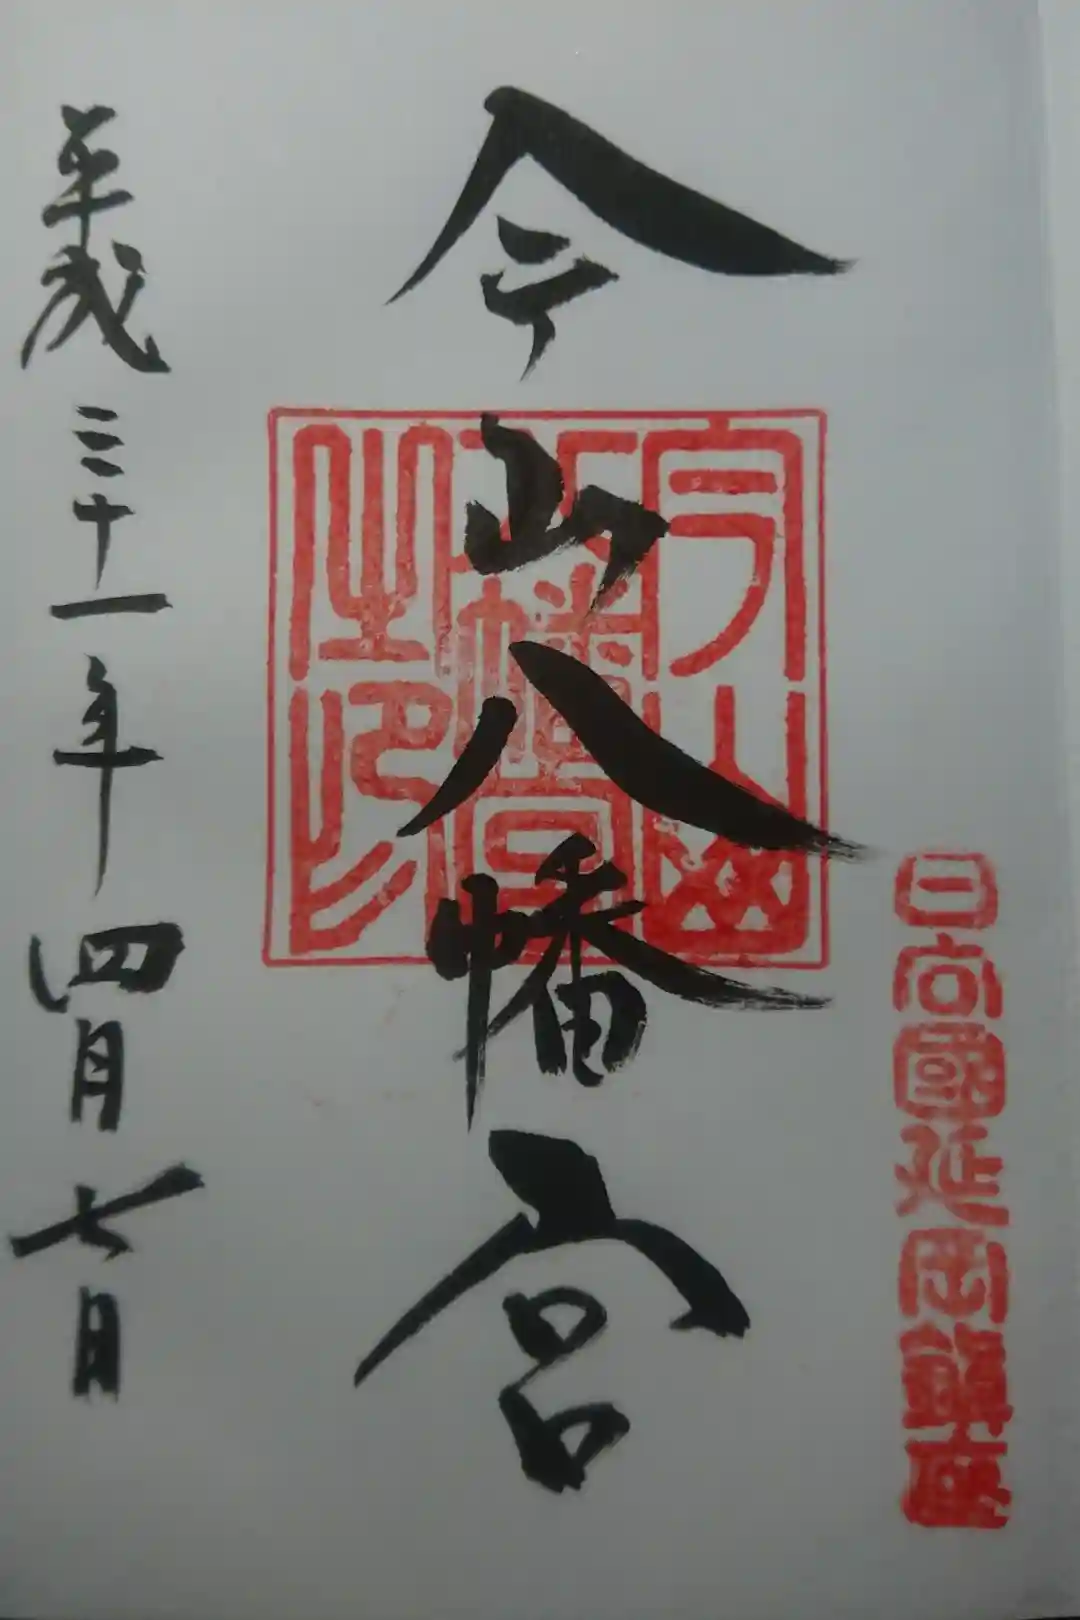 日向國延岡鎮座
今山八幡宮
今山八幡宮之印
平成三十一年四月七日